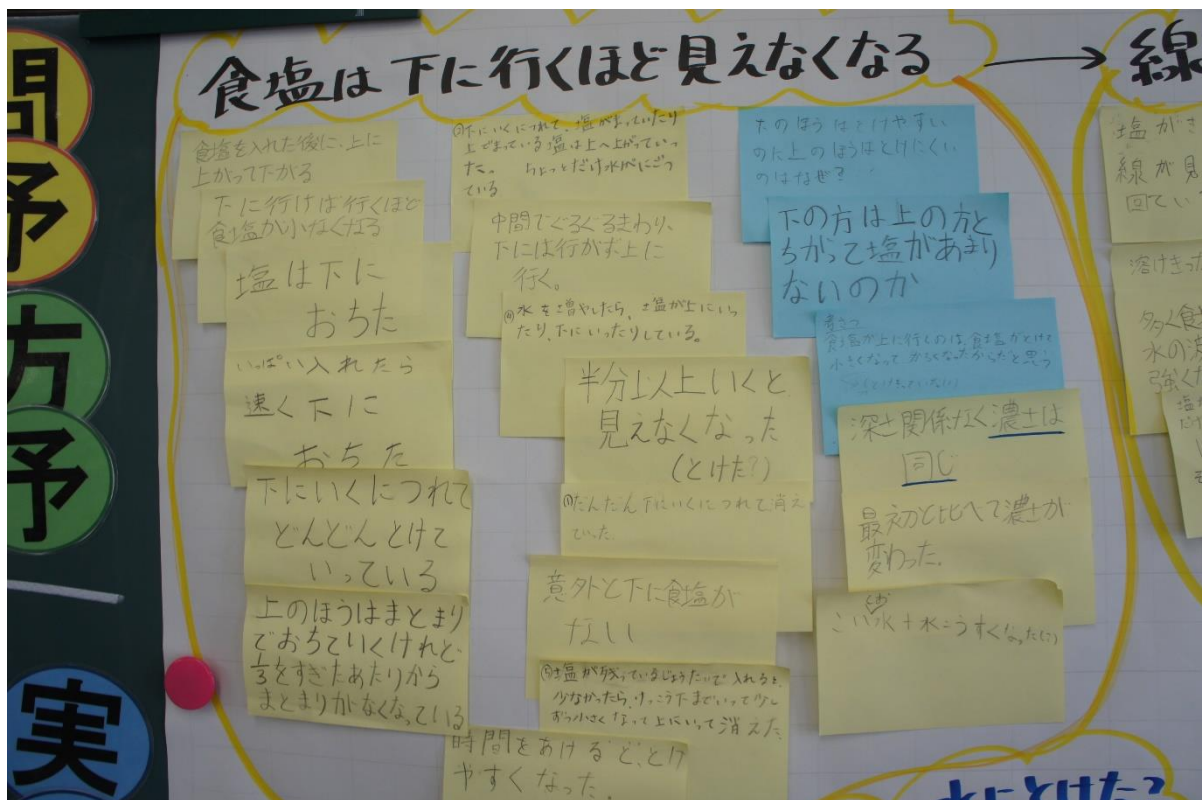 問
予
方
予
実
食塩は下に行くほど見えなくなる → 線
食塩を入れた後に、上に
上がって下がる
下に行けば行くほど
食塩が小なくなる
塩は下に
おちた
いっぱい入れたら
速く下に
おちた
下にいくにつれて
どんどんとけて
いっている
上のほうはまとまり
でおちていくけれど
1/3をすぎたあたりから
まとまりがなくなっている
下にいくにつれて、塩がまっていたり
上でまっている塩は上へ上がっていっ
た。 ちょっとだけ水がにごっ
ている
中間でぐるぐるまわり、
下には行かず上に
行く。
水を増やしたら、塩が上にいっ
たり、下にいったりしている。
半分以上いくと
見えなくなった
(とけた?)
だんだん下にいくにつれて消え
ていった。
意外と下に食塩が
ない
塩が残っているじょうたいで入れると、
少なかったら、けっこう下までいって少し
ずつ小さくなって上にいって消えた。
時間をあけるど、とけ
やすくなった。
下のほうはとけやすい
のに上のほうはとけにくい
のはなぜ?
下の方は上の方と
ちがって塩があまり
ないのか
食塩が上に行くのは食塩がとけて
小さくなって、かるくなったからだと思う
深さ関係なく濃さは
同じ
最初と比べて濃さが
変わった。
こい水+水=うすくなった
塩がき
線が見
回てい
溶けきった
多く食塩
水の流
強くな
水にとけた?